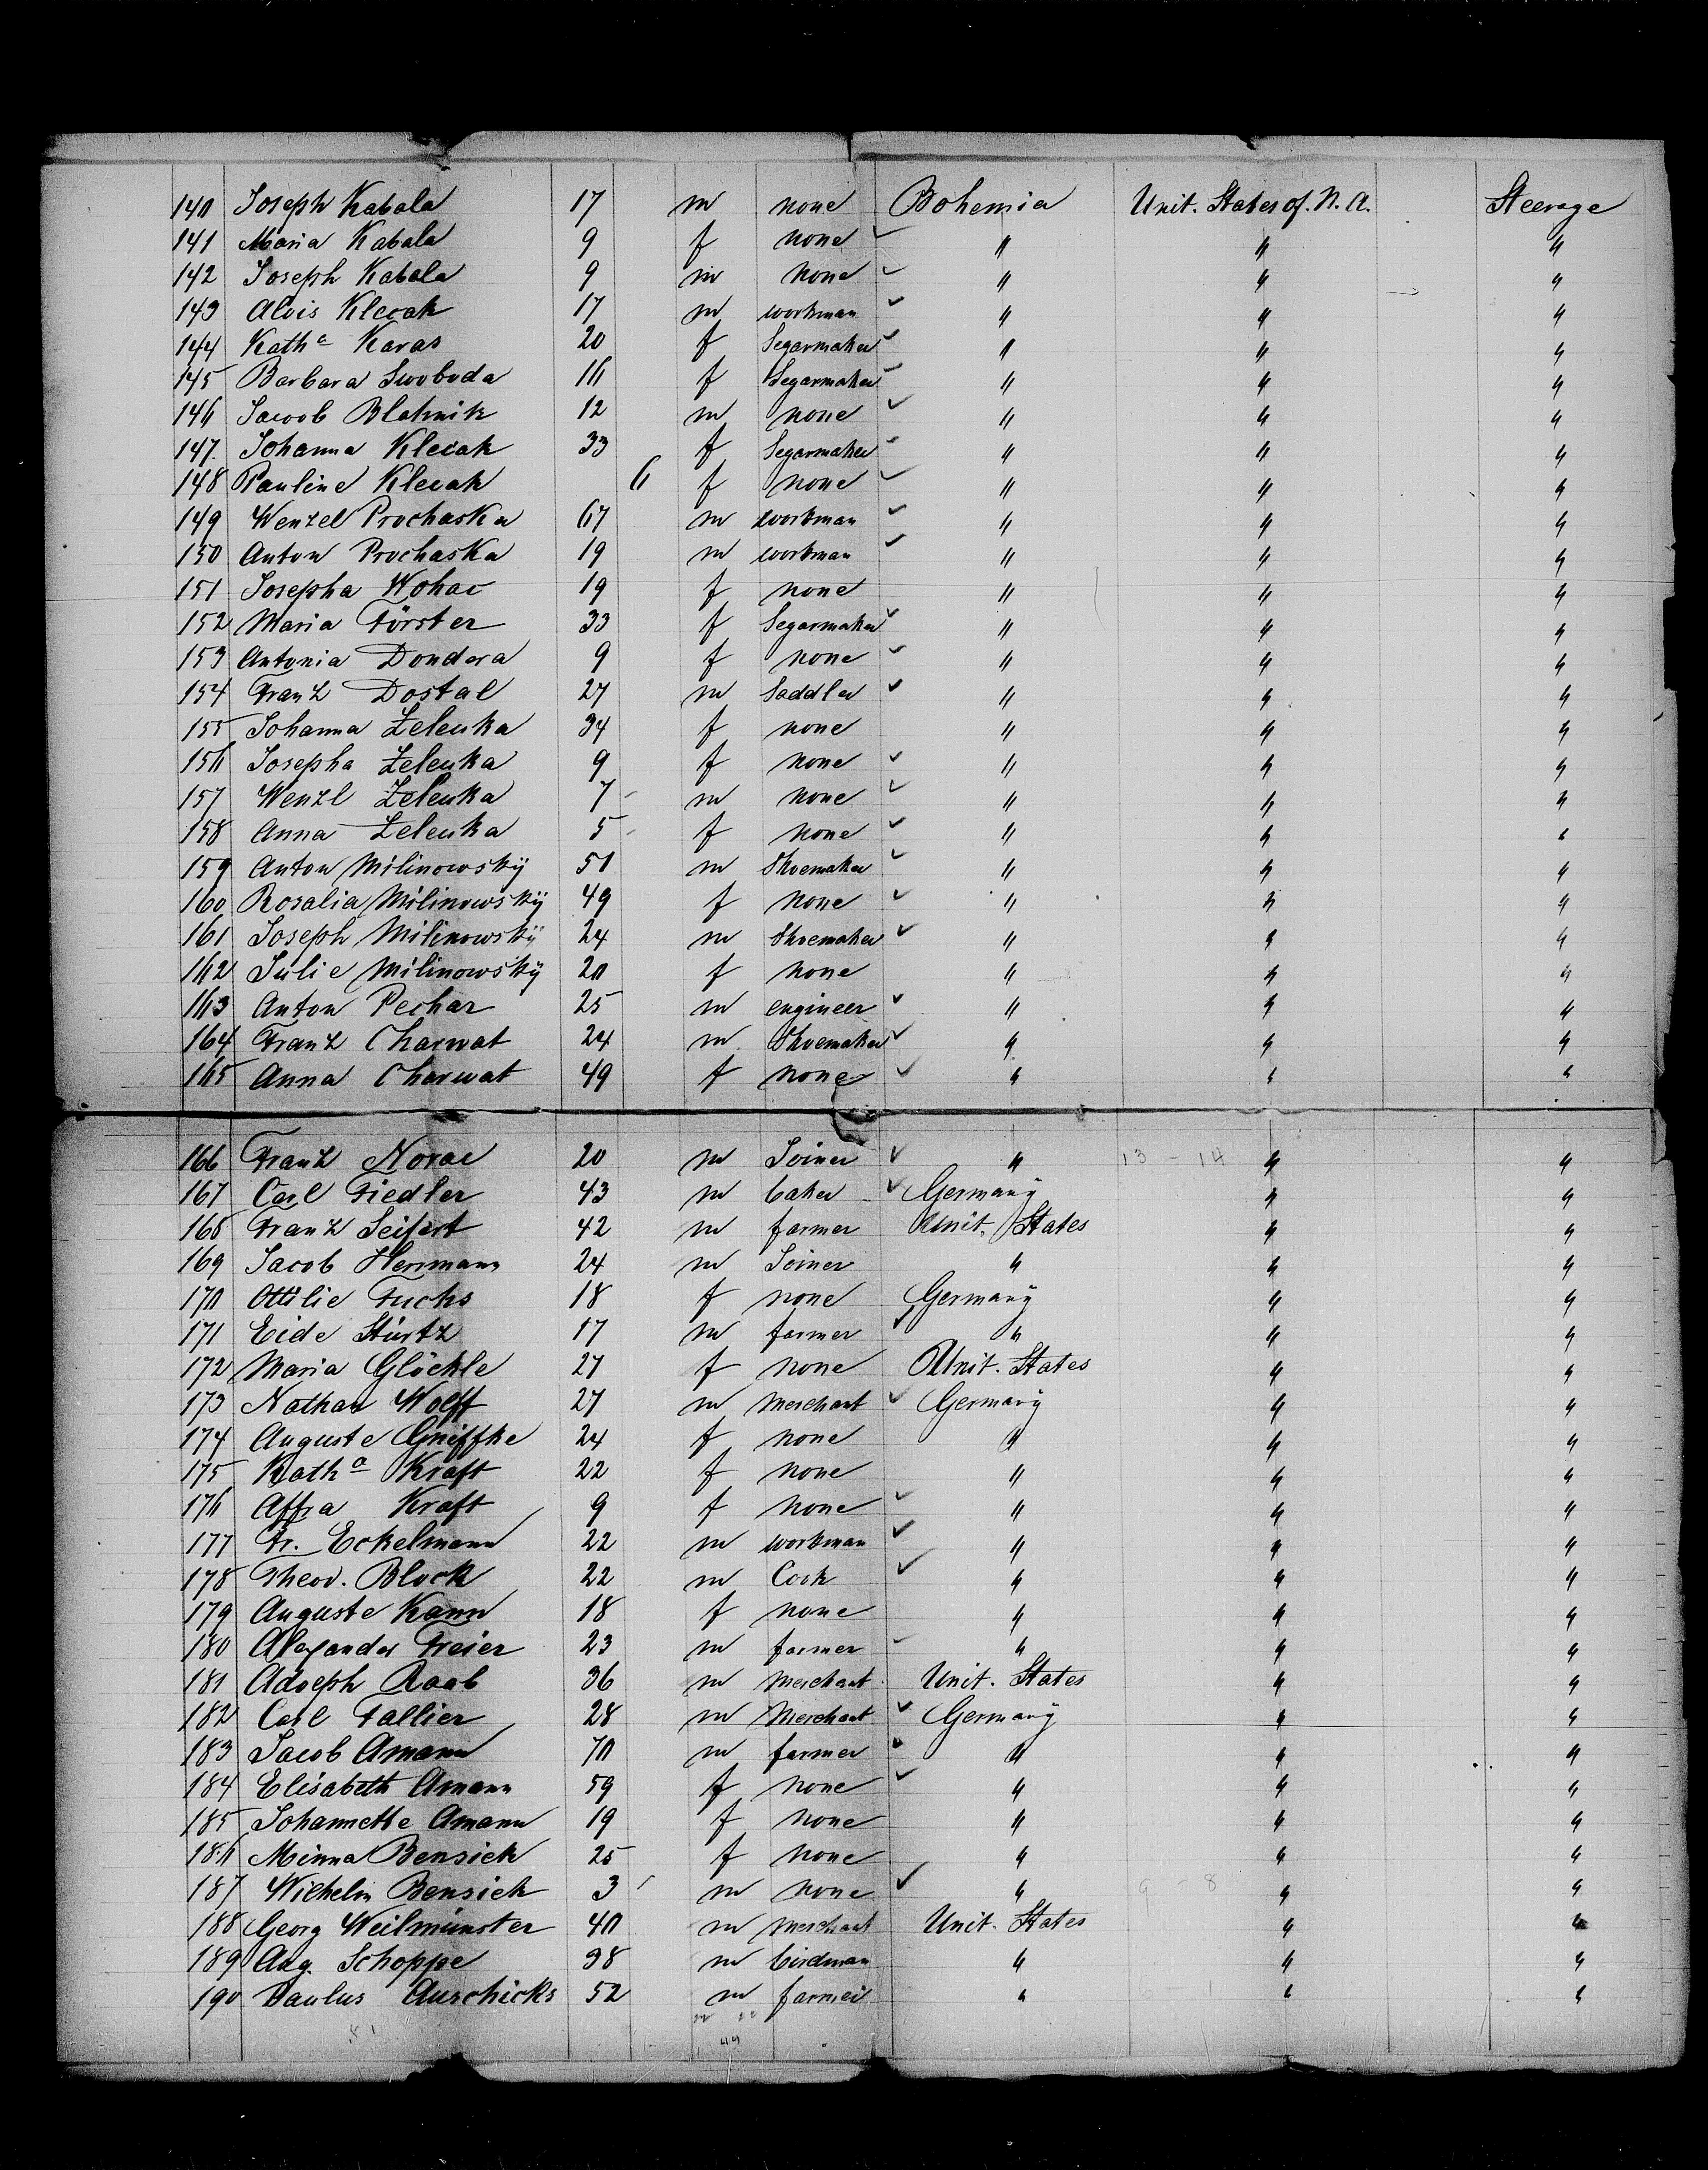 140 Joseph Kabala 17 m none Bohemia Unit. States of. N. A. Steerage
141 Maria Kabala 9 f none " " "
142 Joseph Kabala 9 m none " " "
143 Alois Klecak 17 m workman " " "
144 Kathª Karas 20 f Segarmaker " " "
145 Barbara Swoboda 16 f Segarmaker " " "
146 Jacob Blahnik 12 m none " " "
147. Johanna Klecak 33 f Segarmaker " " "
148 Pauline Klecak 6 f none " " "
149 Wenzel Prochaska 67 m workman " " "
150 Anton Prochaska 19 m workman " " "
151 Josepha Wohac 19 f none " " "
152 Maria Förster 33 f Segarmaker " " "
153 Antonia Dondera 9 f none " " "
154 Franz Dostal 27 m Saddler " " "
155 Johanna Zelenka 34 f none " " "
156 Josepha Zelenka 9 f none " " "
157 Wenzl Zelenka 7 m none " " "
158 Anna Zelenka 5 f none " " "
159 Anton Milinowskÿ 50 m Shoemaker " " "
160 Rosalia Milinowskÿ 49 f none " " "
161 Joseph Milinowskÿ 24 m Shoemaker " " "
162 Julie Milinowskÿ 20 f none " " "
163 Anton Pechar 25 m engineer " " "
164 Franz Charwat 24 m Shoemaker " " "
165 Anna Charwat 49 f none " " "
166 Franz Novac 20 m Joiner " 13 - 14 " "
167 Carl Fiedler 43 m baker Germanÿ " "
168 Franz Seifert 42 m farmer Unit. States " "
169 Jacob Herrmann 24 m Joiner " " "
170 Ottilie Fuchs 18 f none Germanÿ " "
171 Eide Stürtz 17 m farmer " " "
172 Maria Glöckle 27 f none Unit. States " "
173 Nathan Wolff 27 m Merchant Germanÿ " "
174 Auguste Gniffke 24 f none " " "
175 Kathª Kraft 22 f none " " "
176 Affra Kraft 9 f none " " "
177 Fr. Eckelmann 22 m workman " " "
178 Theod. Block 22 m Cook " " "
179 Auguste Kann 18 f none " " "
180 Alexander Freier 23 m farmer " " "
181 Adolph Raab 36 m Merchant Unit. States " "
182 Carl Fallier 28 m Merchant Germanÿ " "
183 Jacob Amann 70 m farmer " " "
184 Elisabeth Amann 59 f none " " "
185 Johannette Amann 19 f none " " "
186 Minna Bensick 25 f none " " "
187 Wilhelm Bensick 3 m none " 9 - 8 " "
188 Georg Weilmünster 40 m Merchant Unit. States " "
189 Aug. Schoppe 38 m birdman " " "
190 Paulus Auschicks 52 m farmer " " "